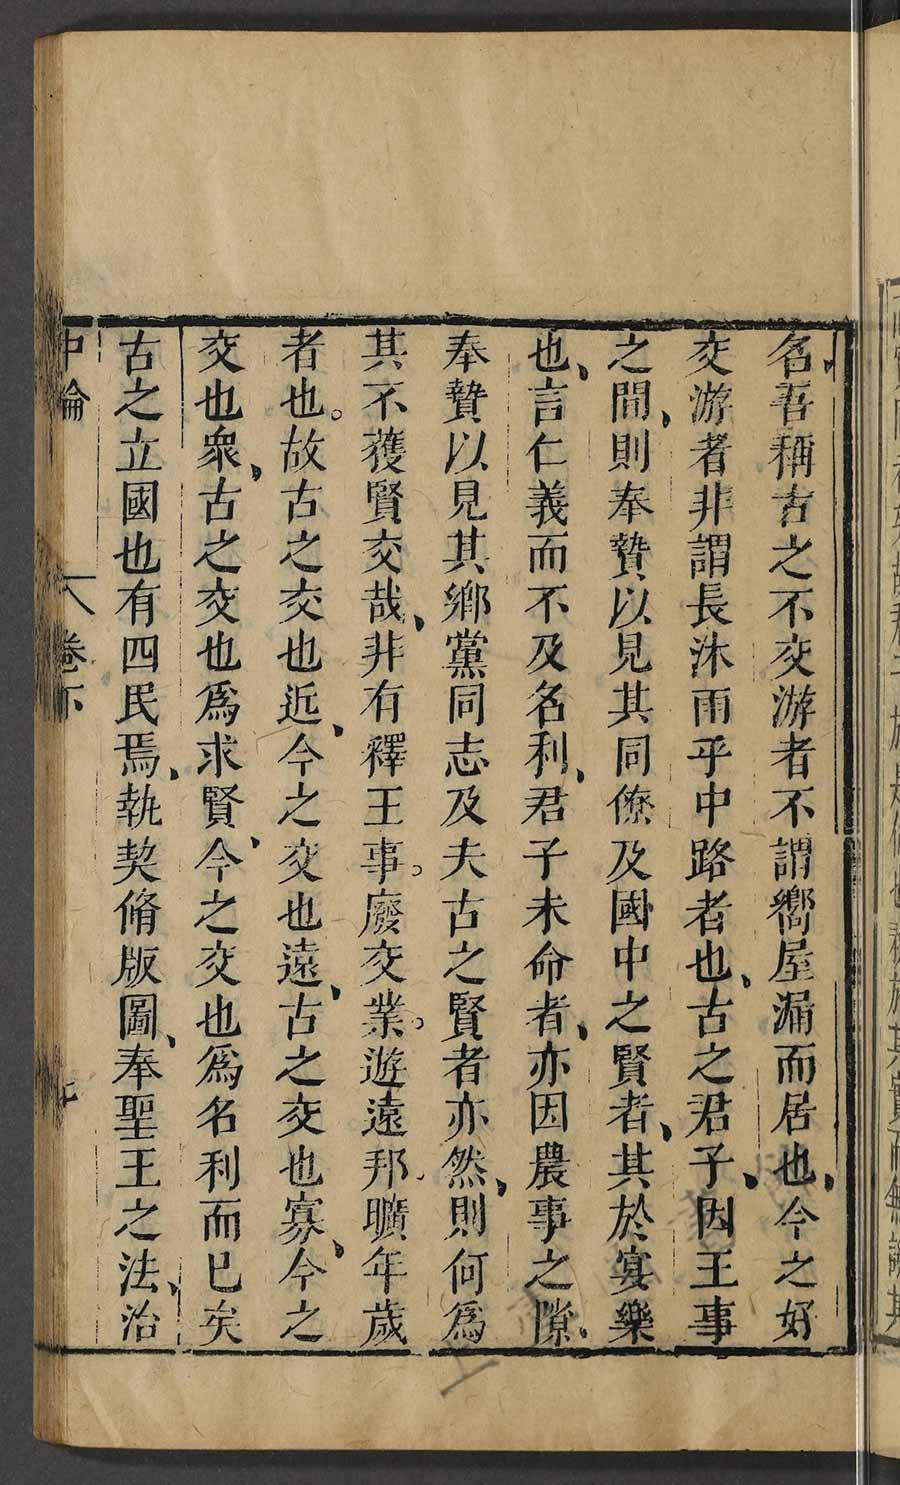 名吾稱古之不交游者不謂嚮屋漏而居也、今之好
交游者非謂長沐雨乎中路者也、古之君子、因王事
之間、則奉贄以見其同僚及國中之賢者、其於宴樂
也、言仁義而不及名利、君子未命者、亦因農事之隙、
奉贄以見其鄉黨同志及夫古之賢者亦然、則何為
其不獲賢交哉、非有釋王事。廢交業。遊遠邦曠年歲
者也。故古之交也近、今之交也遠、古之交也寡、今之
交也衆、古之交也為求賢、今之交也為名利而已矣
古之立國也有四民焉、執契脩版圖、奉聖王之法、治
中論 卷下